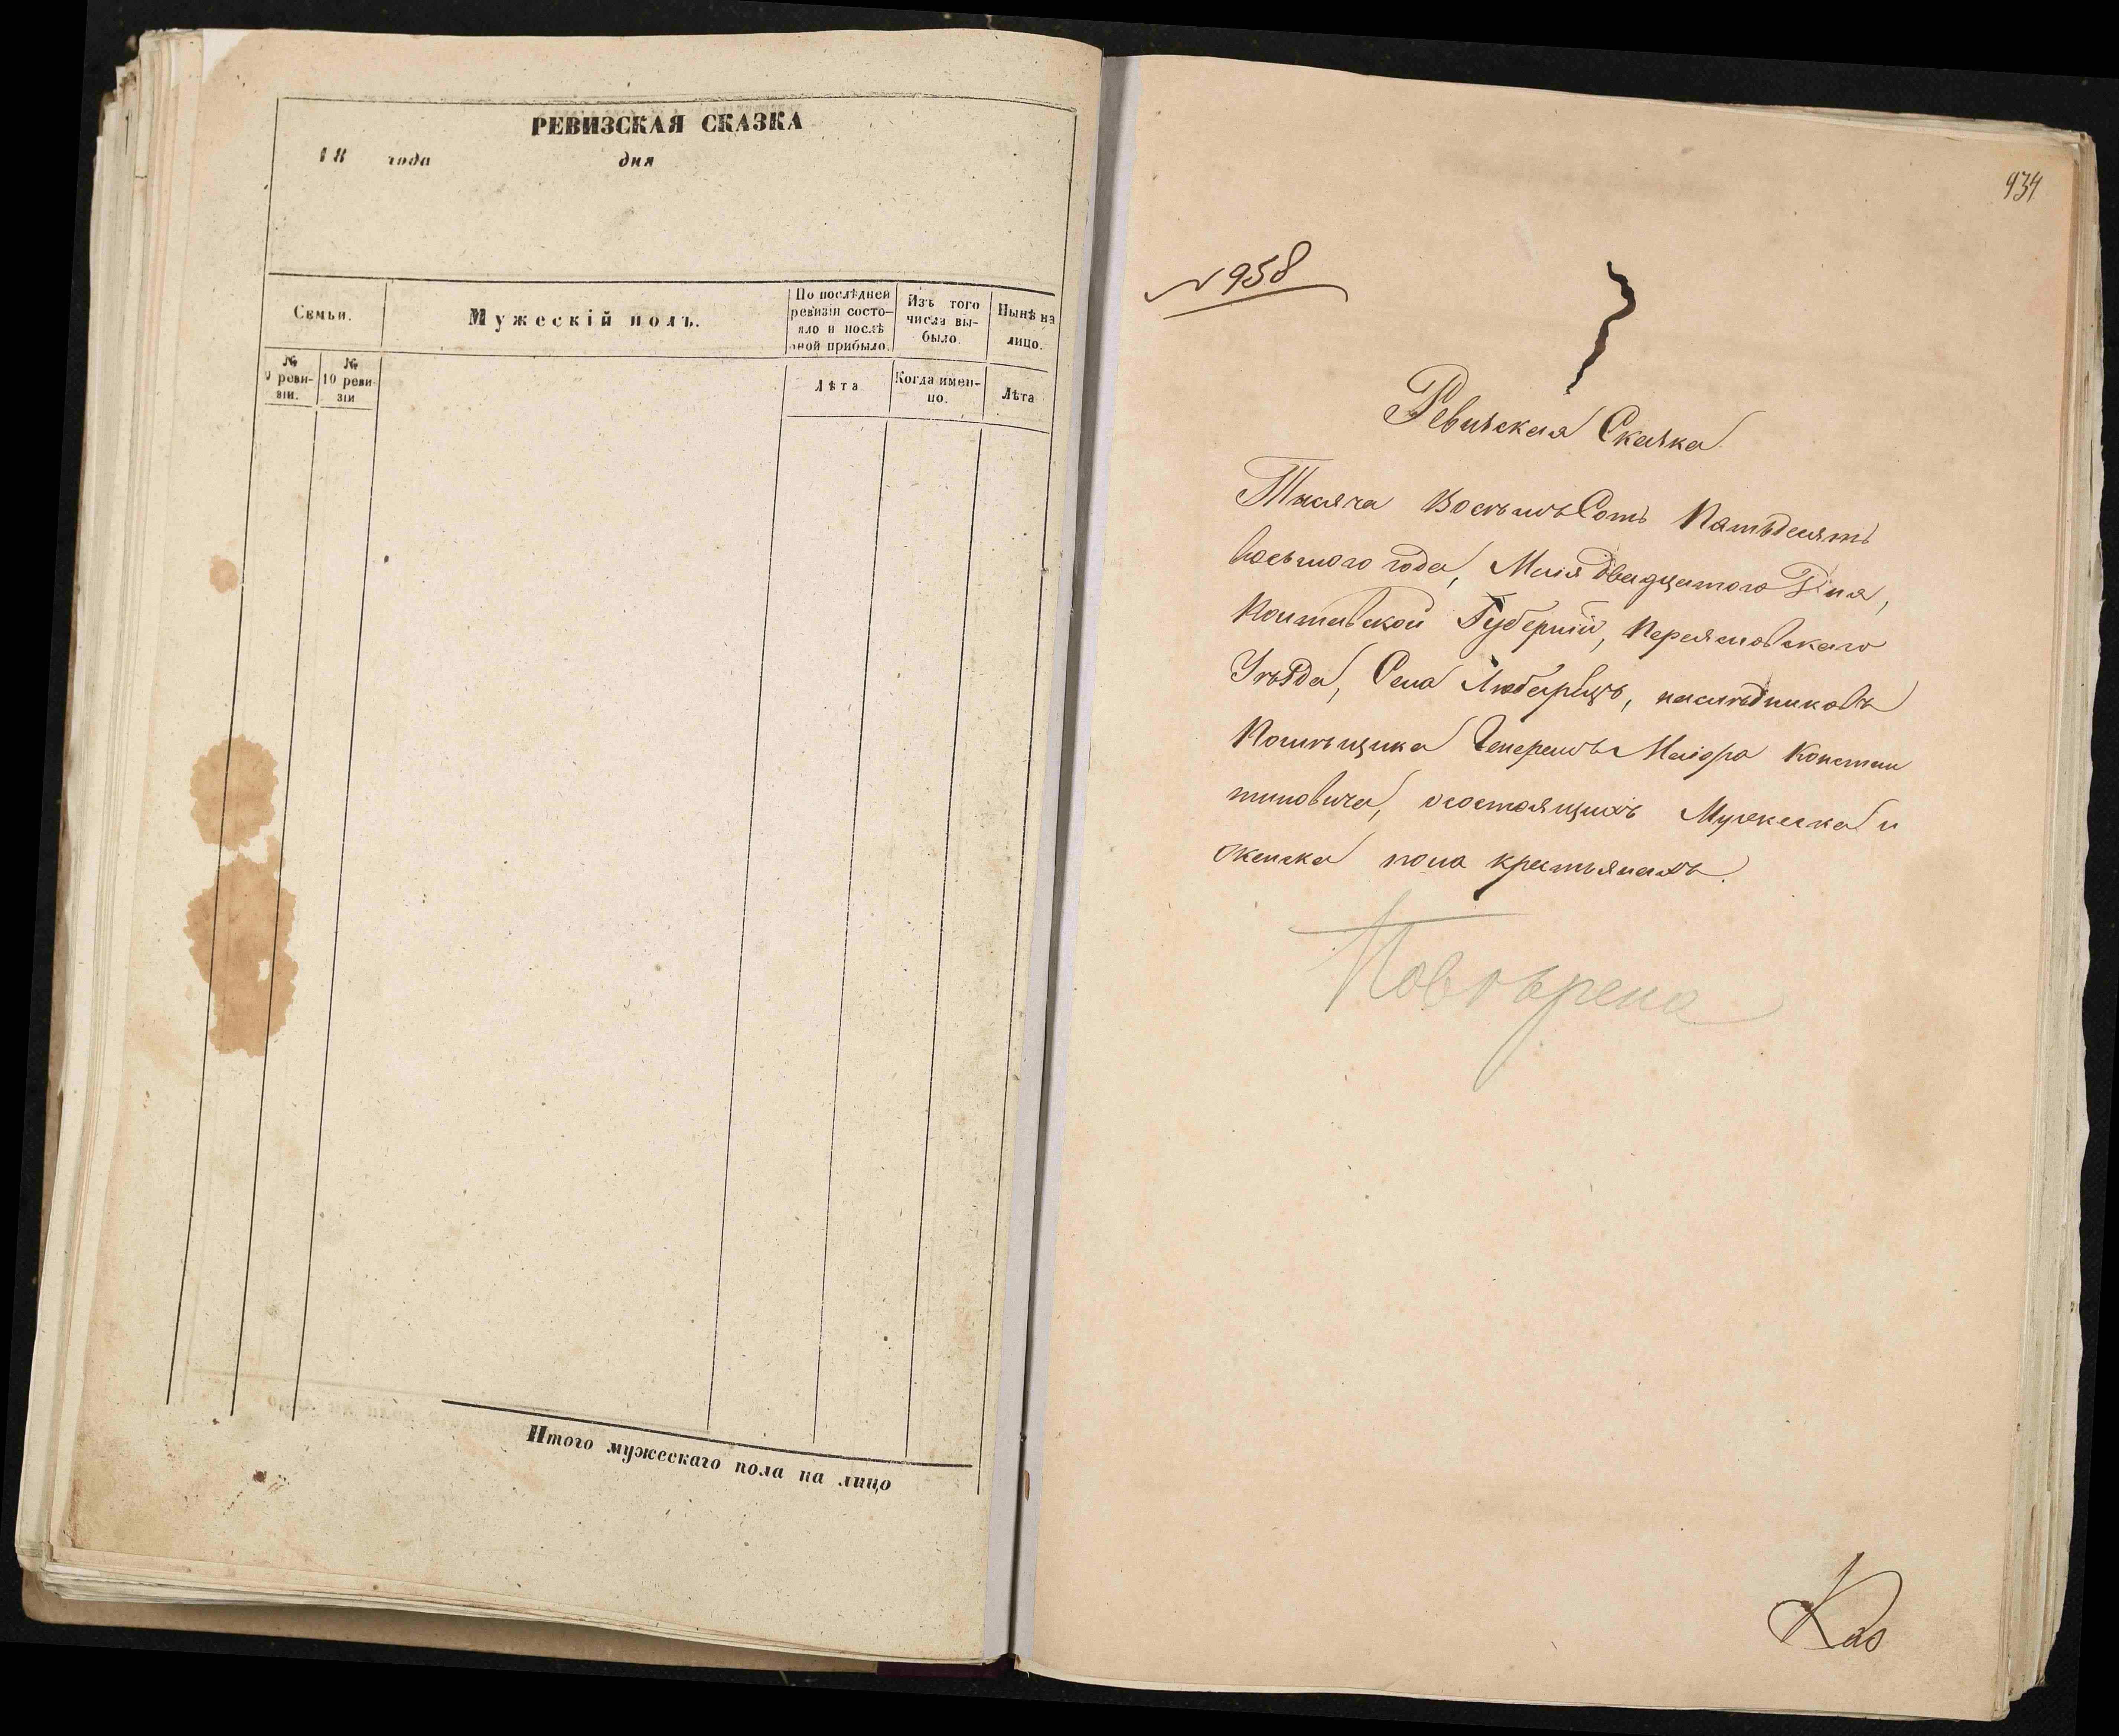 РЕВИЗСКАЯ СКАЗКА
18 года дня
Семьи.
Мужескій полъ.
По послѣдней
ревизіи состо-
яло и послѣ
оной прибыло.
Изъ того
числа вы-
было.
Нынѣ на
лицо.
№
9 реви-
зіи.
№
10 реви-
зіи
Лѣта
Когда имен-
но.
Лѣта
Итого мужескаго пола на лицо
934
№ 958
Ревизская Сказка
Тысяча Восѣмъ Сотъ Пятьдесятъ
Восьмого года, Маія двадцатого Дня,
Полтавской Губерніи, Переяславскаго
Уѣзда, Села Любарецъ, наслѣдниковъ
Помѣщика Генералъ Маіора Констан
тиновича, осостоящихъ Мужеска и
женска пола крестьянахъ.
Повѣрена
Каз